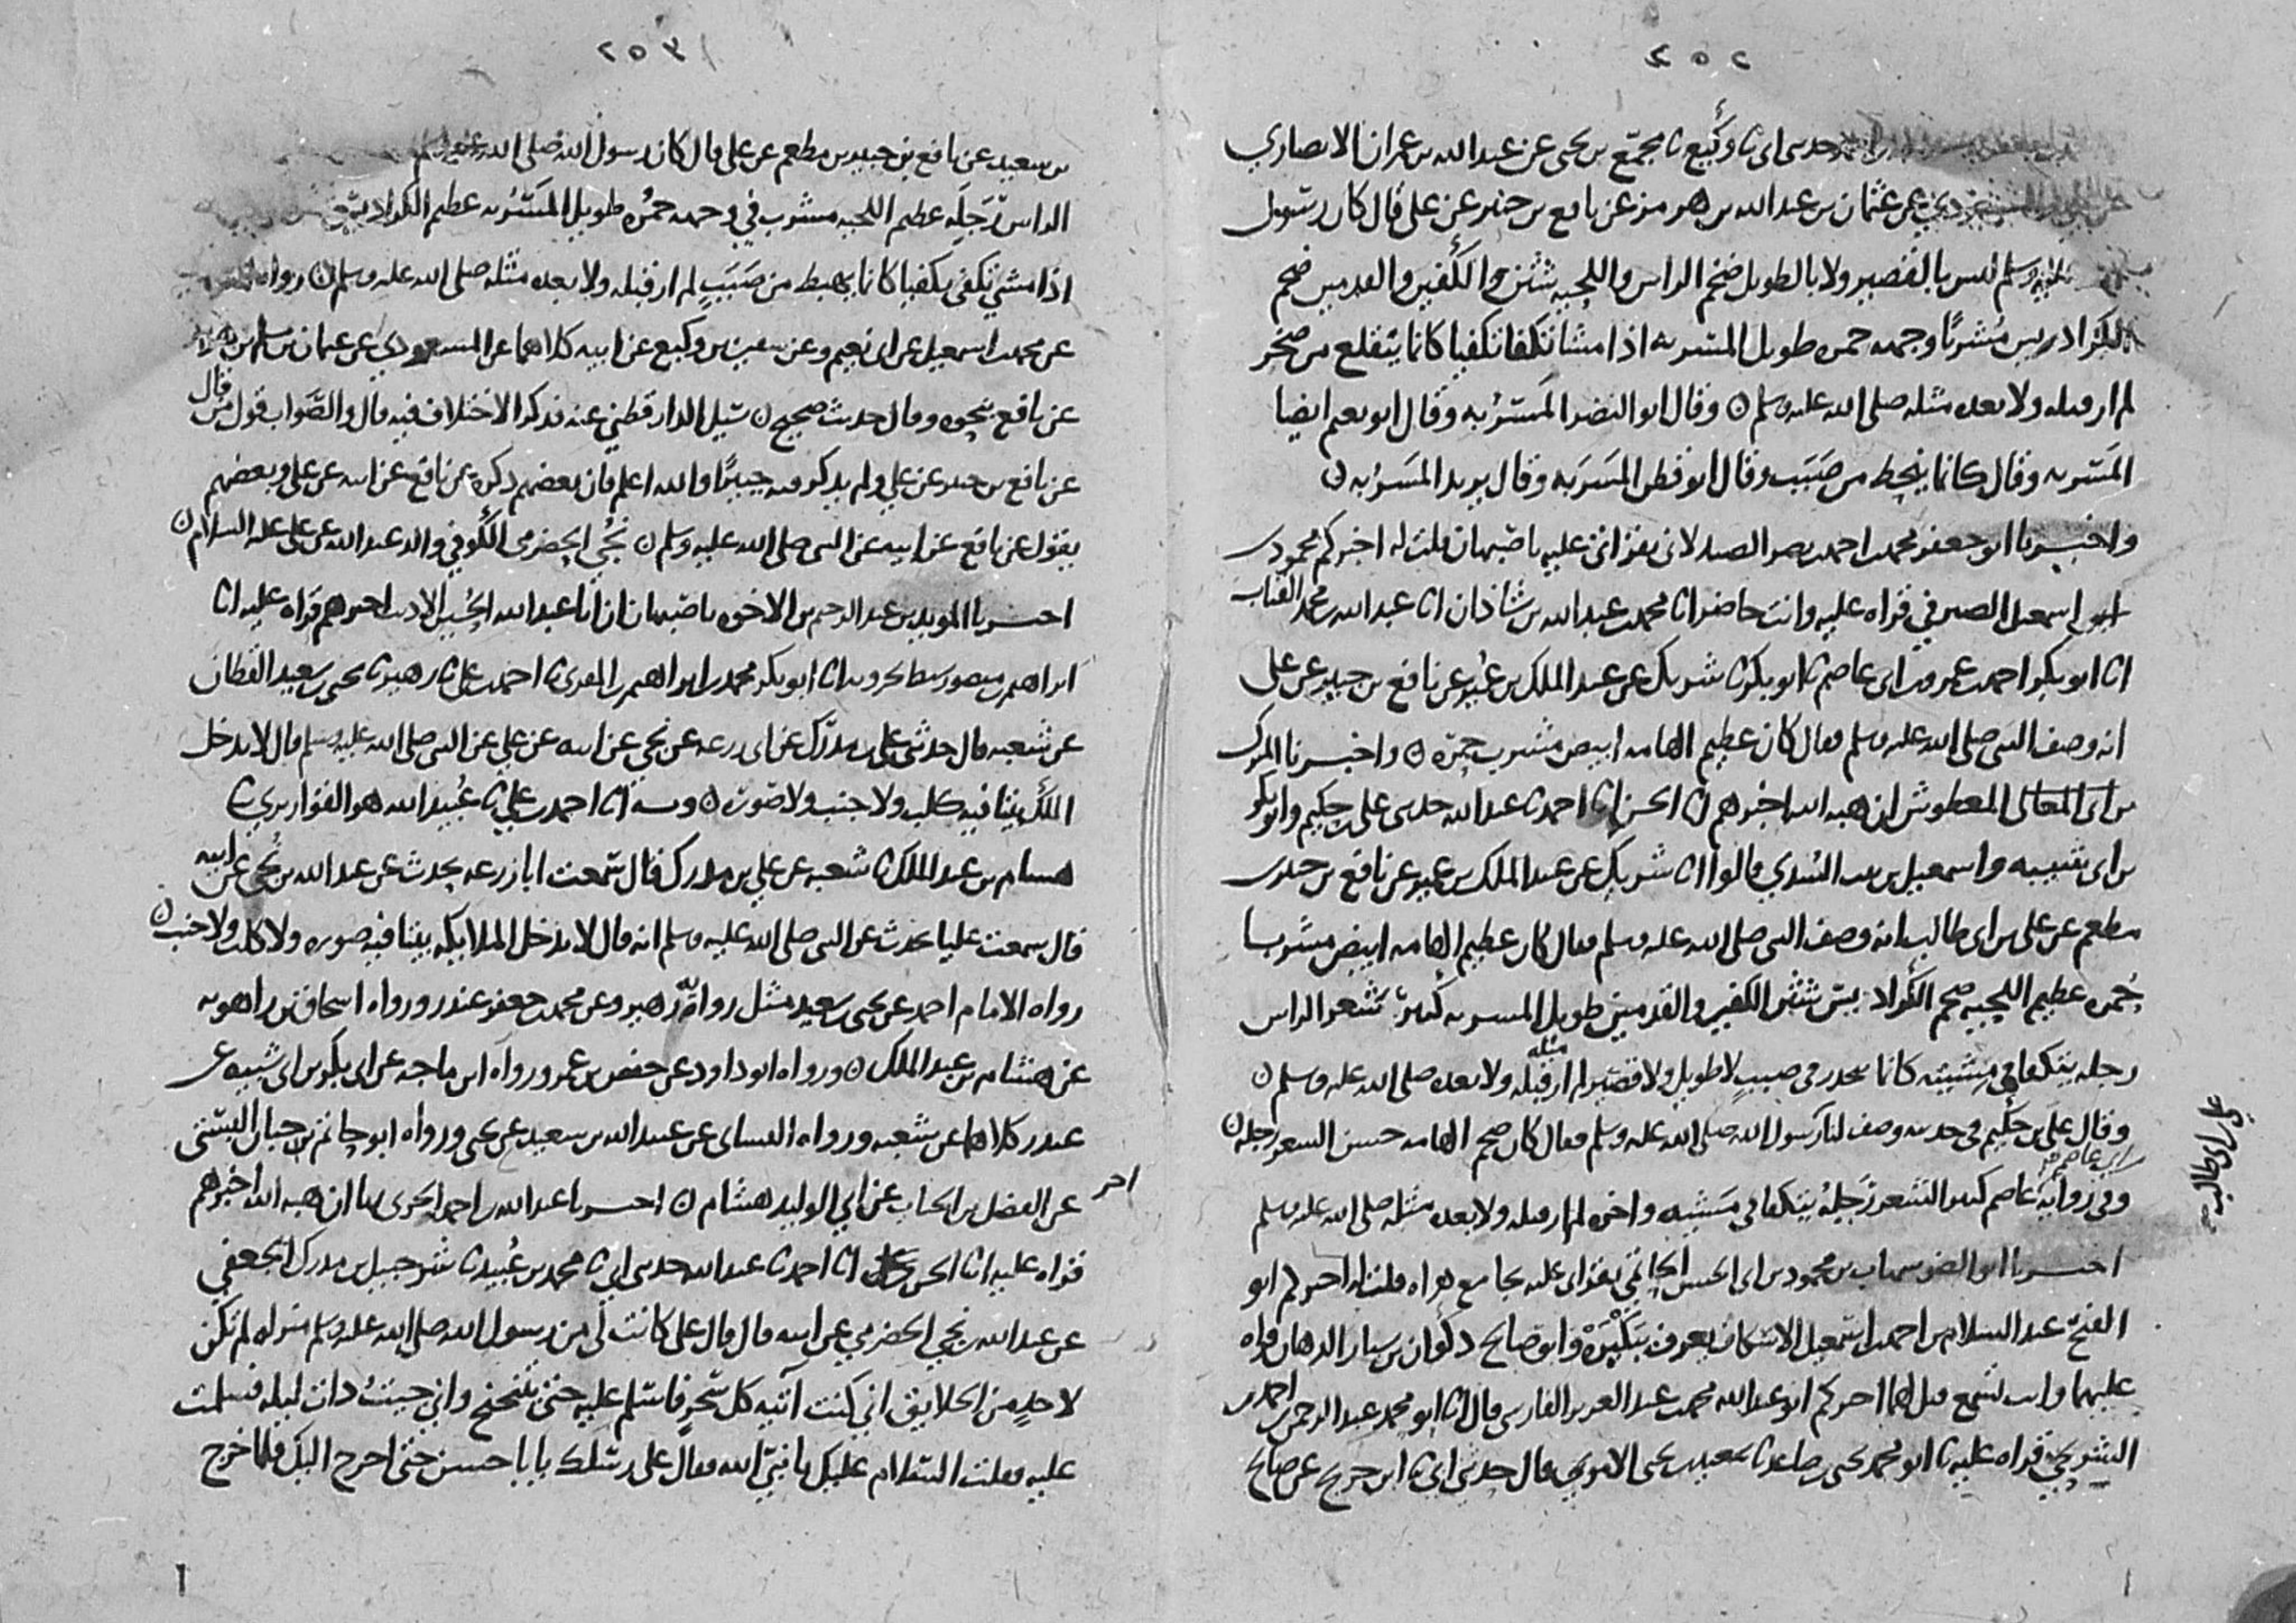 ٢٥٢
حدثني ابي ثنا وكيع ثنا مجمع بن يحيى عن عبد الله بن عمران الانصاري
عن عثمان بن عبد الله بن هرمز عن نافع بن جبير عن علي قال كان رسول
وسلم ليس بالقصير ولا بالطويل ضخم الراس واللحيه شثن الكفين والقدمين ضخم
الكراديس مشربا وجهه حمره طويل المسربه اذا مشا تكفا تكفيا كانما يتقلع من صخر
لم ار قبله ولا بعده مثله صلى الله عليه وسلم ○ وقال ابو النضر المسربه وقال ابو نعيم ايضا
المسربه وقال كانما ينحط من صبب وقال ابو قطن المسربه وقال يزيد المسربه ○
واخبرنا ابو جعفر محمد بن احمد بن نصر الصيدلاني بقراتي عليه باصبهان قلت له اخبركم محمود بن
اسمعيل الصيرفي قراه عليه وانت حاضر انا محمد بن عبد الله بن شاذان انا عبد الله بن محمد القباب
انا ابو بكر احمد بن عمرو بن ابي عاصم ثنا ابو بكر ثنا شريك عن عبد الملك بن عمير عن نافع بن جبير عن علي
انه وصف النبي صلى الله عليه وسلم فقال كان عظيم الهامه ابيض مشرب حمره ○ واخبرنا المبارك
بن ابي المعالي المعطوش ان هبه الله اخبرهم انا الحسن انا احمد ثنا عبد الله حدثني علي بن حكيم وابو بكر
بن ابي شيبه واسمعيل بن بنت السدي قالوا انا شريك عن عبد الملك بن عمير عن نافع بن جبير بن
مطعم عن علي بن ابي طالب انه وصف النبي صلى الله عليه وسلم فقال كان عظيم الهامه ابيض مشربا
حمره عظيم اللحيه ضخم الكراديس شثن الكفين والقدمين طويل المسربه كثير شعر الراس
رجله يتكفا في مشيته كانما ينحدر في صبب لا طويل ولا قصير لم ار مثله قبله ولا بعده صلى الله عليه وسلم ○
وقال علي بن حكيم في حديثه وصف لنا رسول الله صلى الله عليه وسلم فقال كان ضخم الهامه حسن الشعر رجله ○
وفي رواية ابن ابي عاصم كثير الشعر رجله يتكفا في مشيته واخره لم ار قبله ولا بعده مثله صلى الله عليه وسلم
علي بن ابي طالب
اخبرنا ابو النصر بن محمود بن ابي الحسن الحاتمي بقراتي عليه بجامع هراه قلت له اخبركم ابو
الفتح عبد السلام بن احمد بن اسمعيل الاسكاف يعرف ببكبرة وابو صالح ذكوان بن سيار الدهان قراه
عليهما وانت تسمع قيل لهما اخبركم ابو عبد الله محمد بن عبد العزيز الفارسي قال انا ابو محمد عبد الرحمن بن احمد بن
الشريحي قراه عليه ثنا ابو محمد يحيى بن صاعد ثنا سعيد بن يحيى الاموي قال حدثني ابي ثنا ابن جريج عن صالح
٢٥٣
بن سعيد عن نافع بن جبير بن مطعم عن علي قال كان رسول الله صلى الله عليه وسلم
الراس رجله عظيم اللحيه مشرب في وجهه حمره طويل المسربه عظيم الكراديس
اذا مشى تكفى تكفيا كانما يهبط من صبب لم ار قبله ولا بعده مثله صلى الله عليه وسلم ○ رواه
عن محمد بن اسمعيل عن ابي نعيم وعن سفين بن وكيع عن ابيه كلاهما عن المسعودي عن عثمان بن مسلم بن هرمز
عن نافع بنحوه وقال حديث صحيح ○ سئل الدارقطني عنه فذكر الاختلاف فيه قال والصواب قول من قال
عن نافع بن جبير عن علي ولم يذكر فيه جبيرا والله اعلم فان بعضهم ذكره عن نافع عن ابيه عن علي وبعضهم
يقول عن نافع عن ابيه عن النبي صلى الله عليه وسلم ○ نجي الحضرمي الكوفي والد عبد الله عن علي عليه السلام ○
اخبرنا المويد بن عبد الرحيم بن الاخوه باصبهان ان ابا عبد الله الحسين الاديب اخبرهم قراه عليه انا
ابراهيم بن منصور سبط بحرويه انا ابو بكر محمد بن ابراهيم بن المقرئ انا احمد بن علي ثنا زهير ثنا يحيى بن سعيد القطان
عن شعبه قال حدثني علي بن مدرك عن ابي زرعه عن نجي عن ابيه عن علي عن النبي صلى الله عليه وسلم قال لا تدخل
الملك بيتا فيه كلب ولا جنب ولا صوره ○ وبه انا احمد بن علي ثنا عبيد الله هو القواريري ثنا
هشام بن عبد الملك ثنا شعبه عن علي بن مدرك قال سمعت ابا زرعه يحدث عن عبد الله بن نجي عن ابيه
قال سمعت عليا يحدث عن النبي صلى الله عليه وسلم انه قال لا تدخل الملايكه بيتا فيه صوره ولا كلب ولا جنب ○
رواه الامام احمد عن يحيى بن سعيد مثل رواية زهير وعن محمد بن جعفر غندر ورواه اسحاق بن راهويه
عن هشام بن عبد الملك ○ ورواه ابو داود عن حفص بن عمر ورواه ابن ماجه عن ابي بكر بن ابي شيبه عن
غندر كلاهما عن شعبه ورواه النسائي عن عبيد الله بن سعيد عن يحيى ورواه ابو حاتم بن حبان البستي
عن الفضل بن الحباب عن ابي الوليد هشام ○ اخبرنا عبد الله بن احمد الحربي بها ان هبه الله اخبرهم
اخر
قراه عليه انا الحسن بن علي انا احمد ثنا عبد الله حدثني ابي ثنا محمد بن عبيد ثنا شرحبيل بن مدرك الجعفي
عن عبد الله بن نجي الحضرمي عن ابيه قال قال علي كانت لي من رسول الله صلى الله عليه وسلم منزله لم تكن
لاحد من الخلايق اني كنت آتيه كل سحر فاسلم عليه حتى يتنحنح واني جئت ذات ليله فسلمت
عليه فقلت السلام عليك يا نبي الله فقال على رسلك يا ابا حسن حتى اخرج اليك فلما خرج